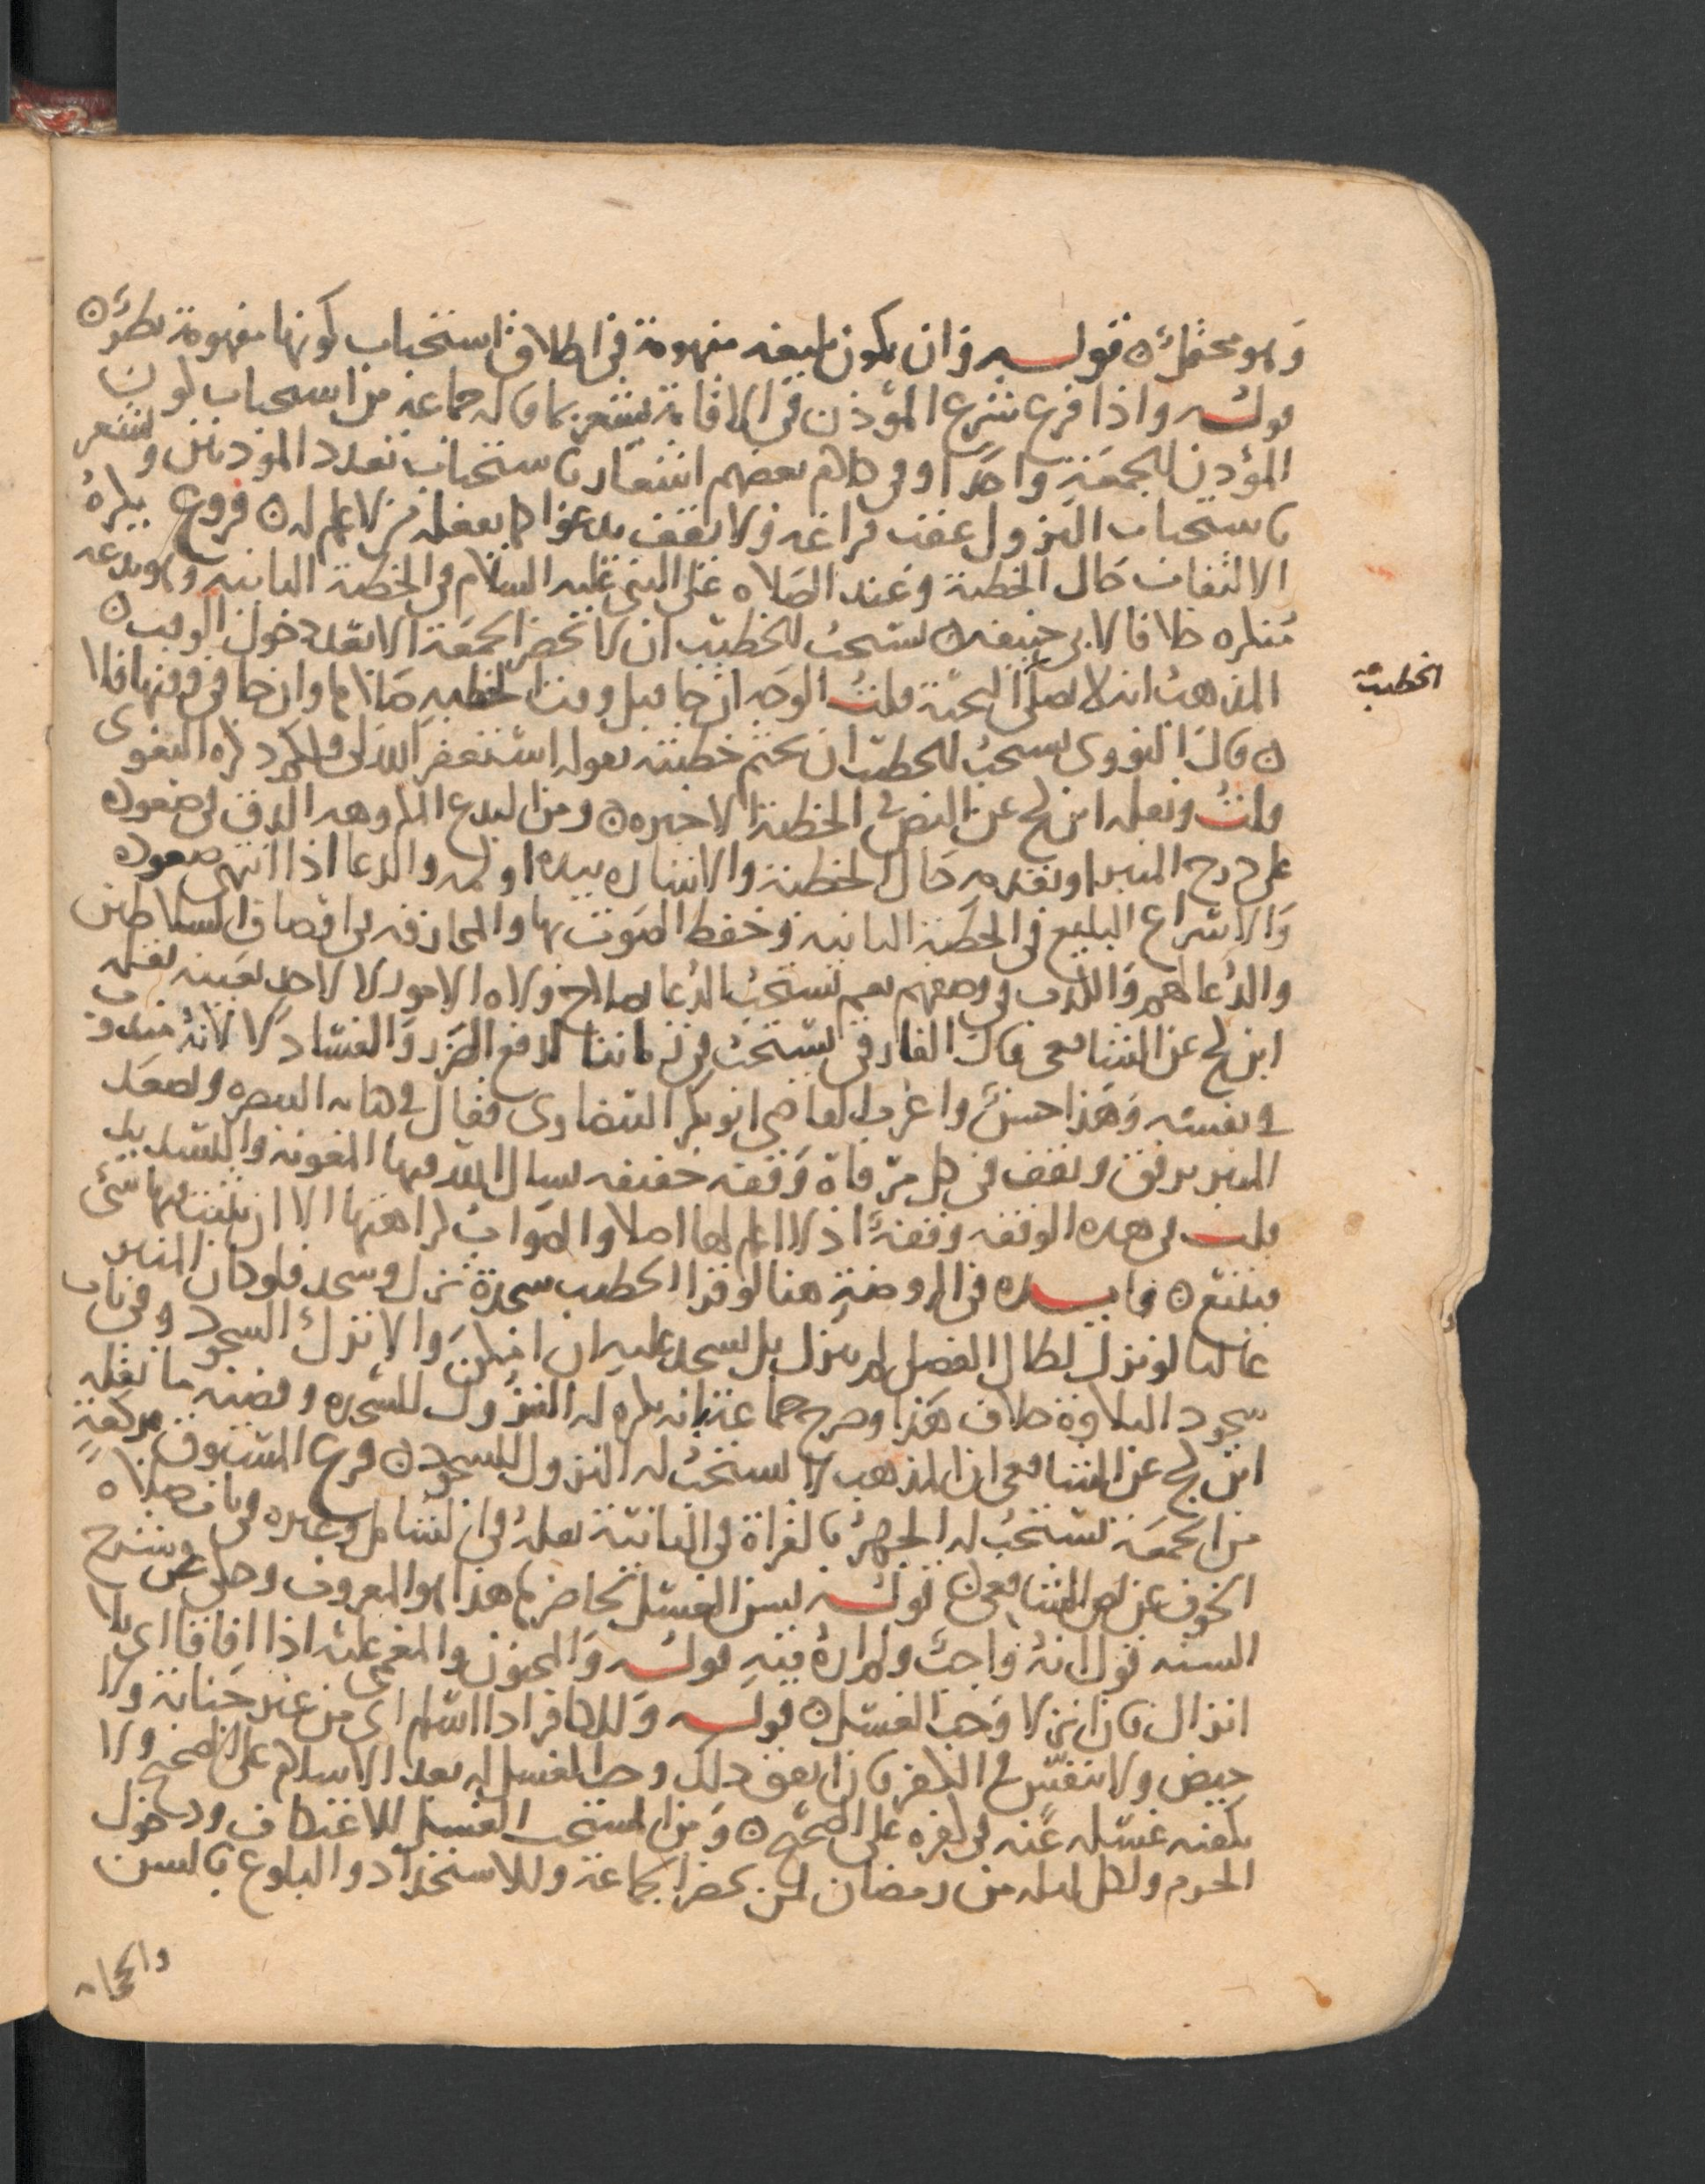 وهو محتمل ه قوله وان يكون بليغة مفهومة في اطلاق استحباب كونها مفهومة نظر ه
قوله واذا فرغ شرع المؤذن في الاقامة يشعر بما قاله جماعة من استحباب كون
المؤذن للجمعة واحدا وفي كلام بعضهم اشعار باستحباب تعدد المؤذنين ويشعر
باستحباب النزول عقب فراغه ولا يقف يدعوا كما يفعله من لا علم له ه فروع يكره
الالتفات حال الخطبة وعند الصلاه على النبي عليه السلام في الخطبة الثانيه وهو بدعه
منكره خلافا لابي حنيفه ه يستحب للخطيب ان لا يحضر الجمعة الا بعد دخول الوقت ه
المذهب انه لا يصلي التحية قلت الوجه ان جا قبل وقت الخطبه صلاها وان جا في وقتها فلا
الخطيب
ه قال النووي يستحب للخطيب ان يختم خطبته بقوله استغفر الله لي ولكم ذكره البغوى
قلت ونقله ابن كج عن النص في الخطبة الاخيره ه ومن البدع المكروهه الدق في صعوده
على درج المنبر او بقدمه حال الخطبة والاشاره بيده او كمه والدعا اذا انتهى صعوده
والاسراع البليغ في الخطبة الثانيه وخفض الصوت بها والمجازفه في اوصاف السلاطين
والدعا لهم والكذب في وصفهم نعم يستحب الدعا بصلاح ولاه الامور لا لاحد بعينه نقله
ابن كج عن الشافعي قال الفارقي يستحب في زماننا لدفع الضرر والفساد لا لانه مندوب
في نفسه وهذا حسن واغرب القاضي ابو بكر البيضاوي فقال في كتابه التبصره ويصعد
المنبر برفق ويقف في كل مرقاة وقفه خفيفه يسال الله فيها المعونه والتسديد
قلت في هذه الوقفه وقفة اذ لا اعلم لها اصلا والصواب كراهتها الا ان يثبت فيها شئ
فيتبع ه فايده في الروضة هنا لو قرا الخطيب سجدة نزل وسجد فلو كان المنبر
عاليا لو نزل لطال الفصل لم ينزل بل يسجد عليه ان امكن والا ترك السجود وفي باب
سجود التلاوة خلاف هذا وصرح جماعة بانه يكره له النزول للسجده وقضيه ما نقله
ابن كج عن الشافعي ان المذهب لا يستحب له النزول للسجود ه فرع المسبوق بركعة
من الجمعة يستحب له الجهر بالقراة في الثانية نقله في الشامل وغيره في باب صلاه
الخوف عن نص الشافعي ه قوله يسن الغسل لحاضرها هذا هو المعروف وحكى عن شرح
السنه قول انه واجب ولم اره فيه قوله والمجنون والمغمى عليه اذا افاقا اي بلا
انزال فان انزلا وجب الغسل ه قوله وللكافر اذا اسلم اي من غير جنابة ولا
حيض ولا نفس في الكفر فان اتفق ذلك وجب الغسل له بعد الاسلام على الصحيح ولا
يكفيه غسله عنه في كفره على الصحيح ه ومن المستحب الغسل للاعتكاف ودخول
الحرم ولكل ليله من رمضان لمن يحضر الجماعة وللاستحداد والبلوغ بالسن
والحجامه